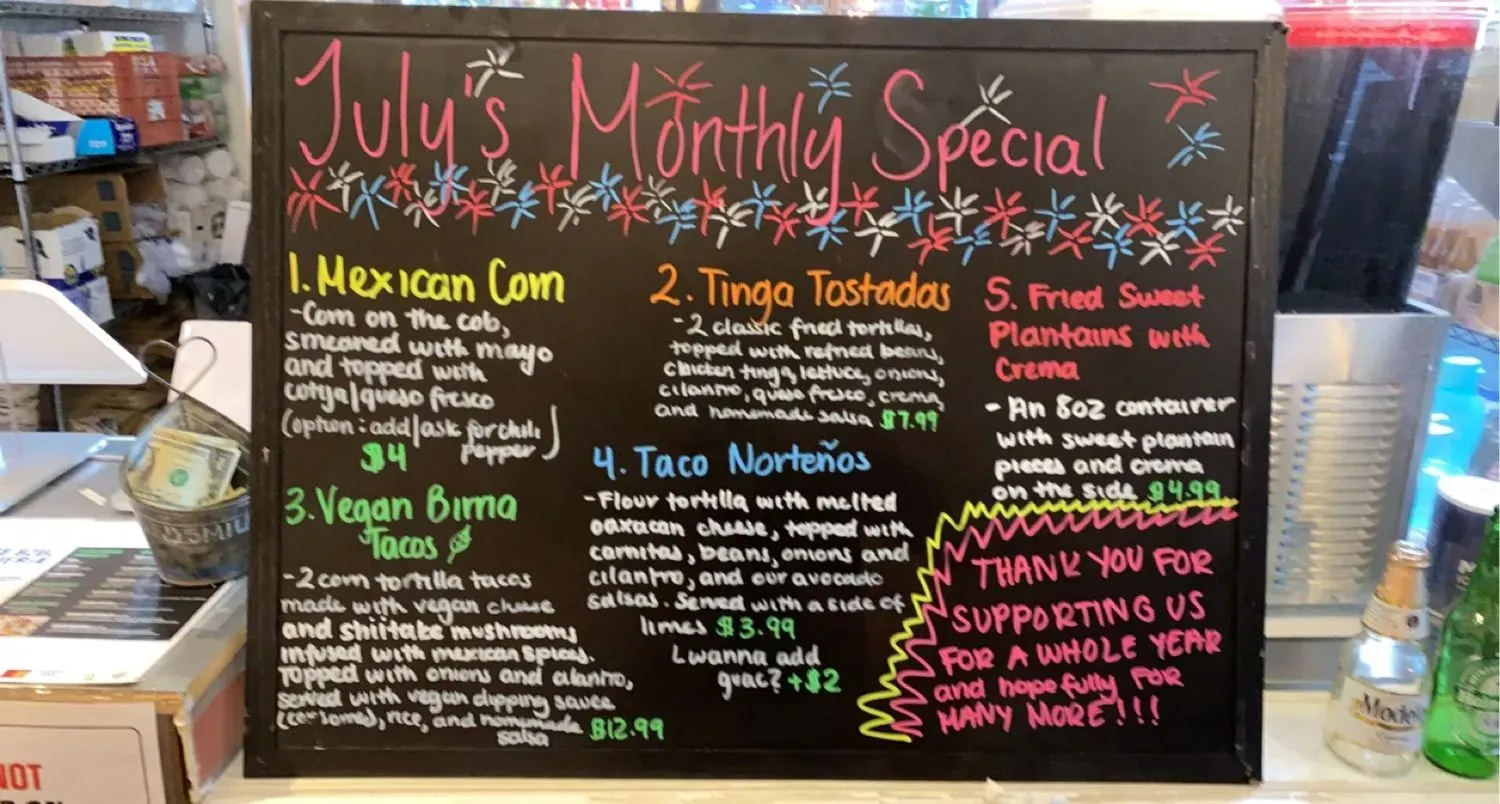 July's Monthly Special
1. Mexican Corn
-Corn on the cob,
smeared with mayo
and topped with
cotija/queso fresco
(option: add/ask for chili
pepper)
$4
2. Tinga Tostadas
-2 classic fried tortillas,
topped with refried beans,
chicken tinga, lettuce, onions,
cilantro, queso fresco, crema,
and homemade salsa $7.99
3. Vegan Birria
Tacos
-2 corn tortilla tacos
made with vegan cheese
and shiitake mushrooms
infused with mexican spices.
Topped with onions and cilantro,
served with vegan dipping sauce
(consomé), rice, and homemade
salsa $12.99
4. Taco Norteños
-Flour tortilla with melted
oaxacan cheese, topped with
carnitas, beans, onions and
cilantro, and our avocado
salsas. Served with a side of
limes $3.99
wanna add
guac? +$2
5. Fried Sweet
Plantains with
Crema
-An 8oz container
with sweet plantain
pieces and crema
on the side $4.99
THANK YOU FOR
SUPPORTING US
FOR A WHOLE YEAR
and hopefully FOR
MANY MORE!!!
Modelo